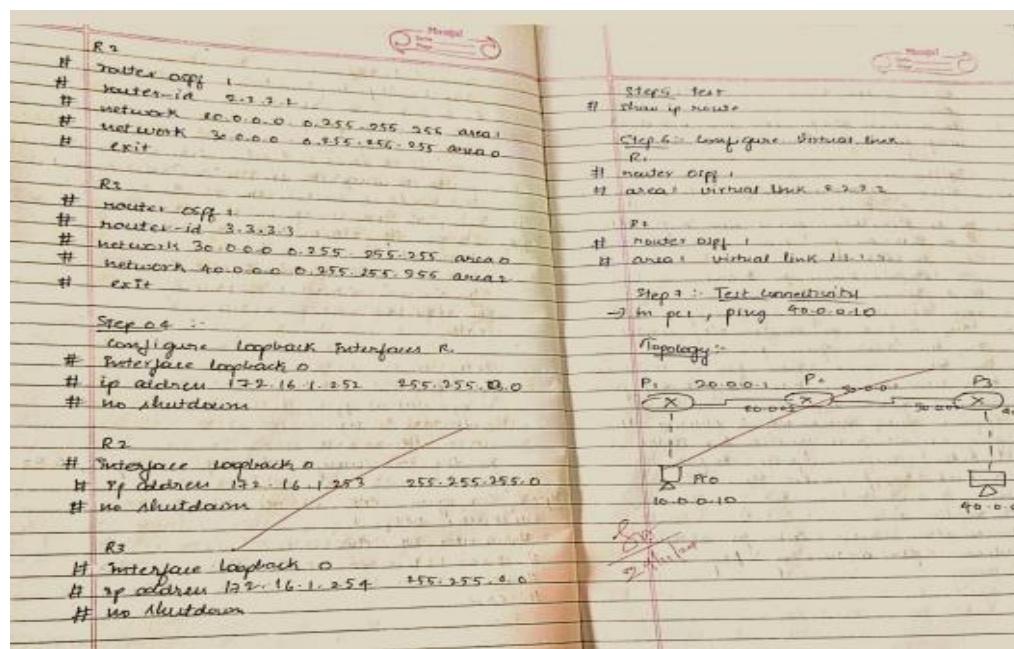 R2
# router ospf 1
# router-id 2.2.2.2
# network 20.0.0.0 0.255.255.255 area 1
# network 30.0.0.0 0.255.255.255 area 0
# exit
R3
# router ospf 1
# router-id 3.3.3.3
# network 30.0.0.0 0.255.255.255 area 0
# network 40.0.0.0 0.255.255.255 area 2
# exit
Step 04 :-
Configure loopback Interfaces R1
# Interface loopback 0
# ip address 172.16.1.252 255.255.0.0
# no shutdown
R2
# Interface loopback 0
# Ip address 172.16.1.253 255.255.255.0
# no shutdown
R3
# Interface loopback 0
# ip address 172.16.1.254 255.255.0.0
# no shutdown
Step 5: Test
# show ip route
Step 6 :- Configure Virtual link
R1
# router ospf 1
# area 1 virtual link 2.2.2.2
R2
# router ospf 1
# area 1 virtual link
Step 7 :- Test connectivity
→ In pc1, ping 40.0.0.10
Topology :-
20.0.0.1
PC0
10.0.0.10